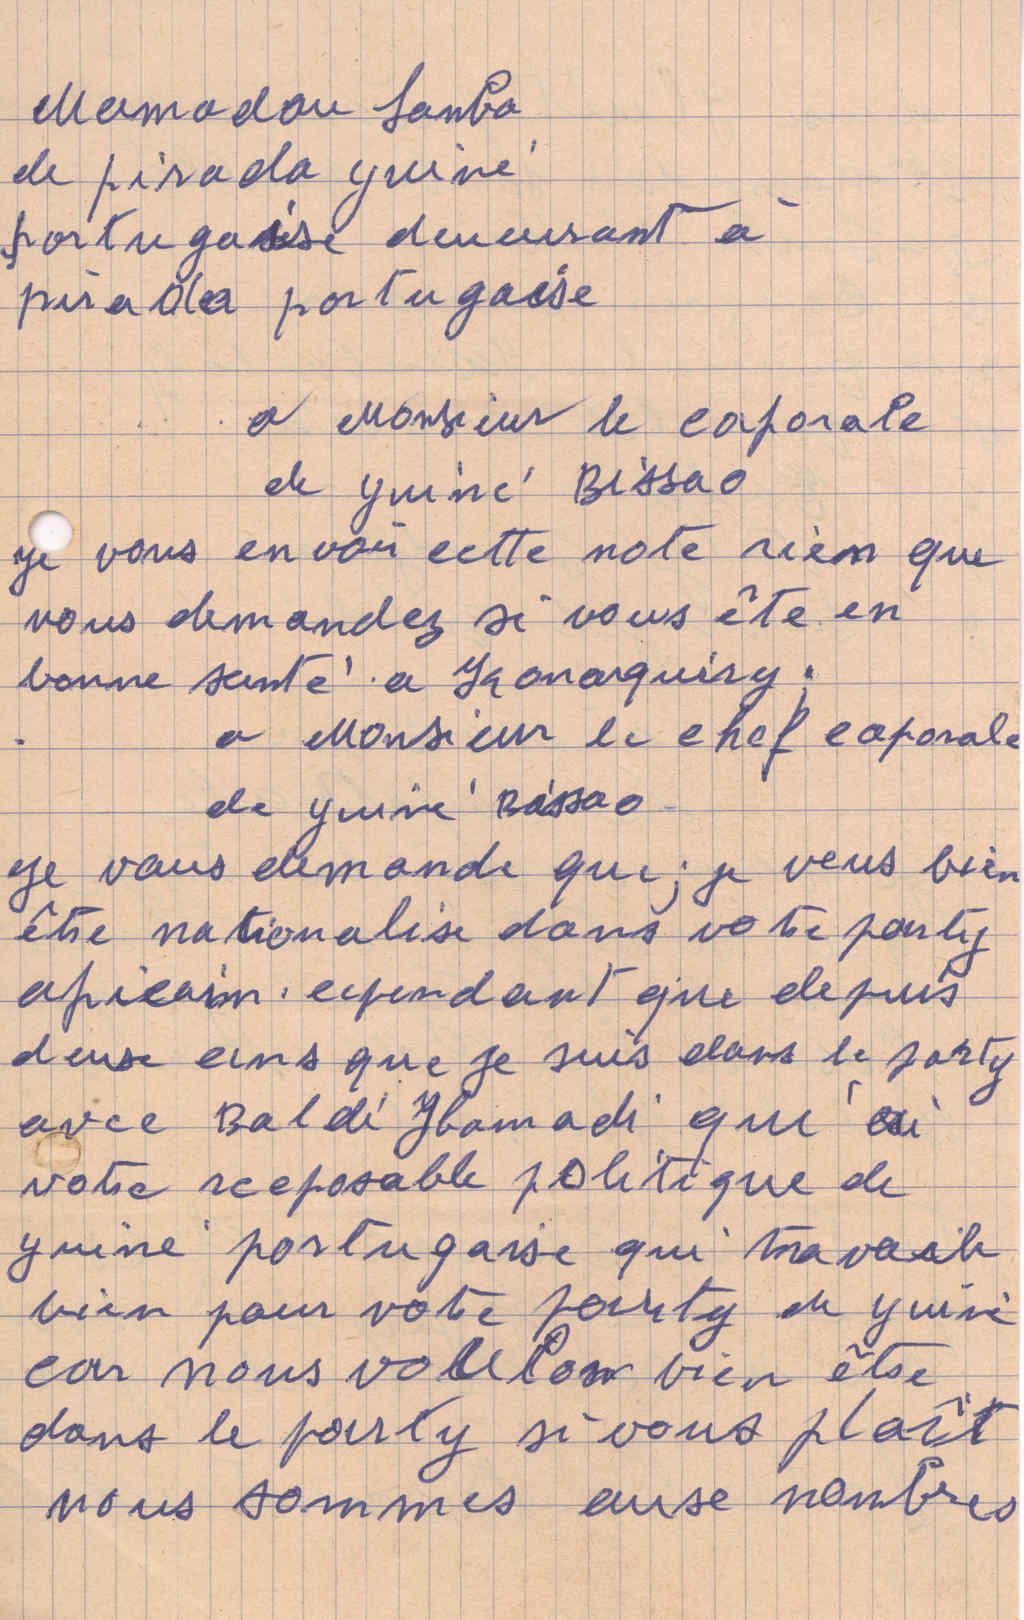 Mamadou Samba
de pirada guiné
portugaise demeurant à
pirada portugaise
a Monsieur le caporale
de guiné Bissao
je vous envoii cette note rièn que
vous demandez si vous ête en
bonne santé a
a Monsieur le chef caporale
de guiné Bissao
Je vous demande que; je veus bièn
être nationalise dans vote party
africain. cependant que depuis
deuse ans que je suis dans le party
avec Baldé que
votre reeposable politique de
guiné portugaise qui travaile
bièn pour vote party de guiné
car nous voulon bien être
dans le party si vous plaît
nous sommes nombres